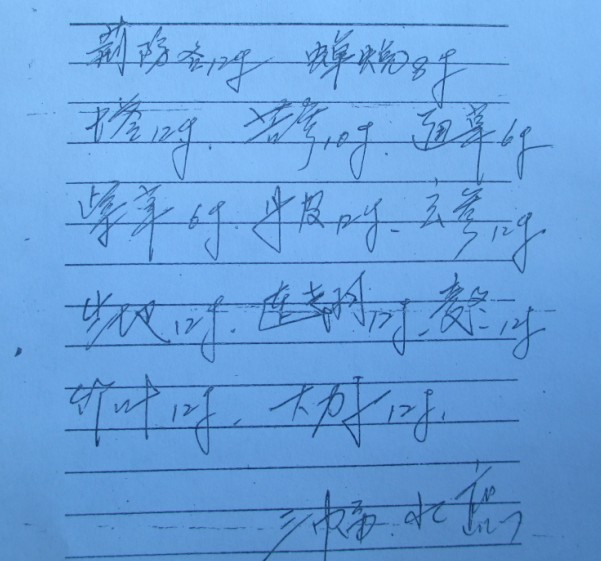 荆防各12g 蝉蜕8g
12g、苦参10g、通草6g
紫草6g、丹皮12g、玄参12g
生地12g、连翘12g、12g
竹叶12g、大力子12g、
三付 水煎